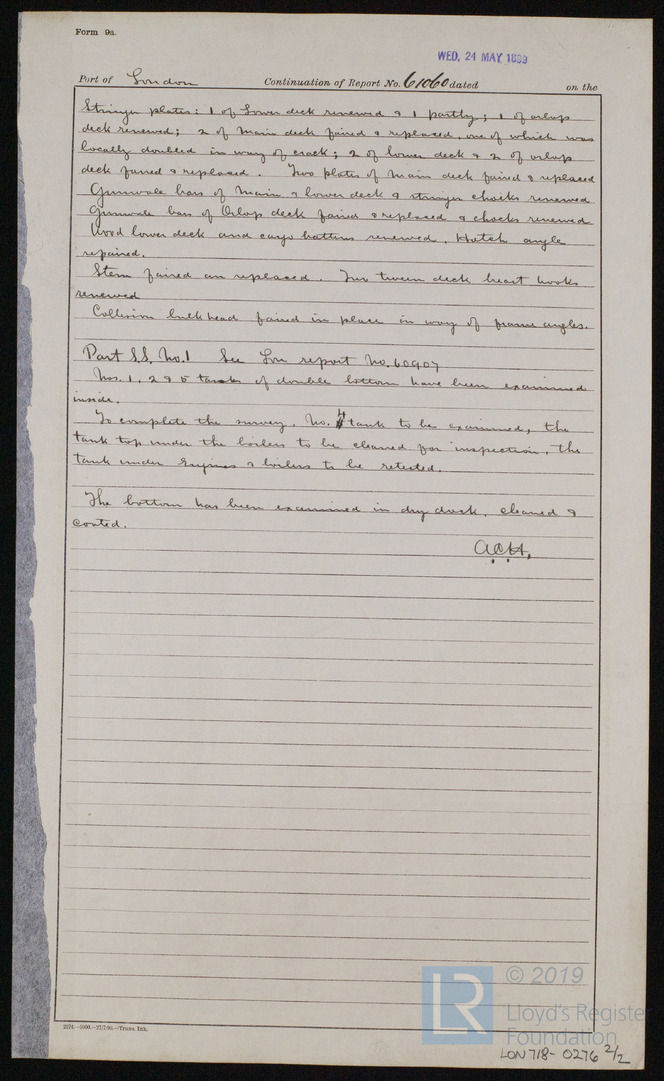 Form 9a.
WED. 24 MAY 1899
Port of London Continuation of Report No. 61060 dated on the
Stringer plates: 1 of Lower deck renewed & 1 partly; 1 of orlop
deck renewed; 2 of Main deck faired & replaced, one of which was
locally doubled in way of crack; 2 of lower deck & 2 of orlop
deck faired & replaced. Two plates of Main deck faired & replaced
Gunwale bars of Main & lower deck & stringer chocks renewed
Gunwale bars of Orlop deck faired & replaced & chocks renewed
Wood lower deck and cargo battens renewed. Hatch angle
repaired.
Stem faired an replaced. Two tween deck breast hooks
renewed
Collision bulkhead faired in place in way of frame angles.
Part S.S. No.1 See Lon report No. 60907
Nos. 1, 2 & 5 tanks of double bottom have been examined
inside.
To complete the survey. No. 4 tank to be examined, the
tank top under the boilers to be cleaned for inspection, the
tank under Engines & boilers to be retested.
The bottom has been examined in dry dock, cleaned &
coated.
A.C.H.
2174.—5000.—27/7/98.—Trans. Ink.
LR © 2019
Lloyd's Register
Foundation
LON 718-0276 2/2